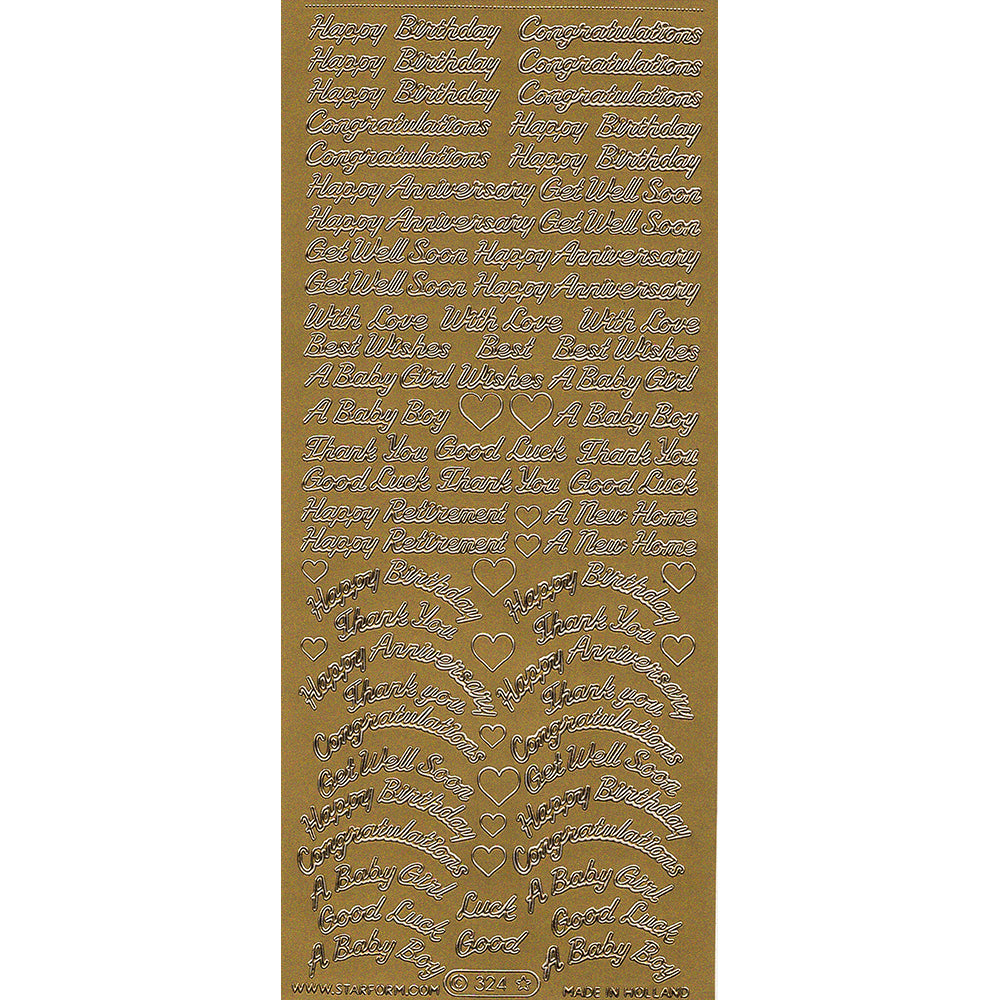 Happy Birthday Congratulations
Happy Birthday Congratulations
Happy Birthday Congratulations
Congratulations Happy Birthday
Congratulations Happy Birthday
Happy Anniversary Get Well Soon
Happy Anniversary Get Well Soon
Get Well Soon Happy Anniversary
Get Well Soon Happy Anniversary
With Love With Love With Love
Best Wishes Best Best Wishes
A Baby Girl Wishes A Baby Girl
A Baby Boy A Baby Boy
Thank You Good Luck Thank You
Good Luck Thank You Good Luck
Happy Retirement A New Home
Happy Retirement A New Home
Happy Birthday Happy Birthday
Thank You Thank You
Happy Anniversary Happy Anniversary
Thank you Thank you
Congratulations Congratulations
Get Well Soon Get Well Soon
Happy Birthday Happy Birthday
Congratulations Congratulations
A Baby Girl A Baby Girl
Good Luck Luck Good Luck
A Baby Boy Good A Baby Boy
WWW.STARFORM.COM © 324 ☆ MADE IN HOLLAND